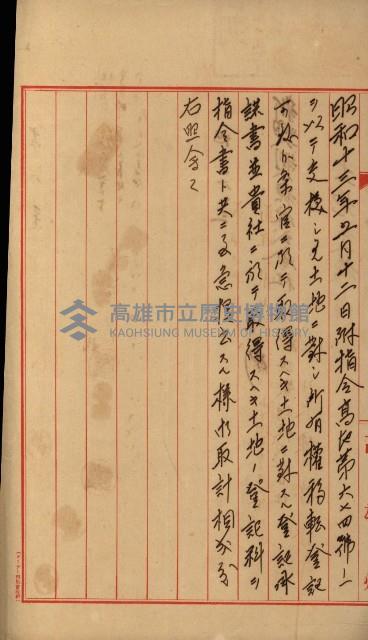 昭和十三年五月十二日附指令高地第六七四號ニ
ヲ以テ交換シタル土地ニ對シ所有權移転登記
可致ニ付官ニ於テ取得スヘキ土地ニ對スル登記承
諾書並貴社ニ於テ取得スヘキ土地ノ登記料ヲ
指令書ト共ニ至急提出スル様御取計相成度
右照會ス
高雄市立歷史博物館
KAOHSIUNG MUSEUM OF HISTORY